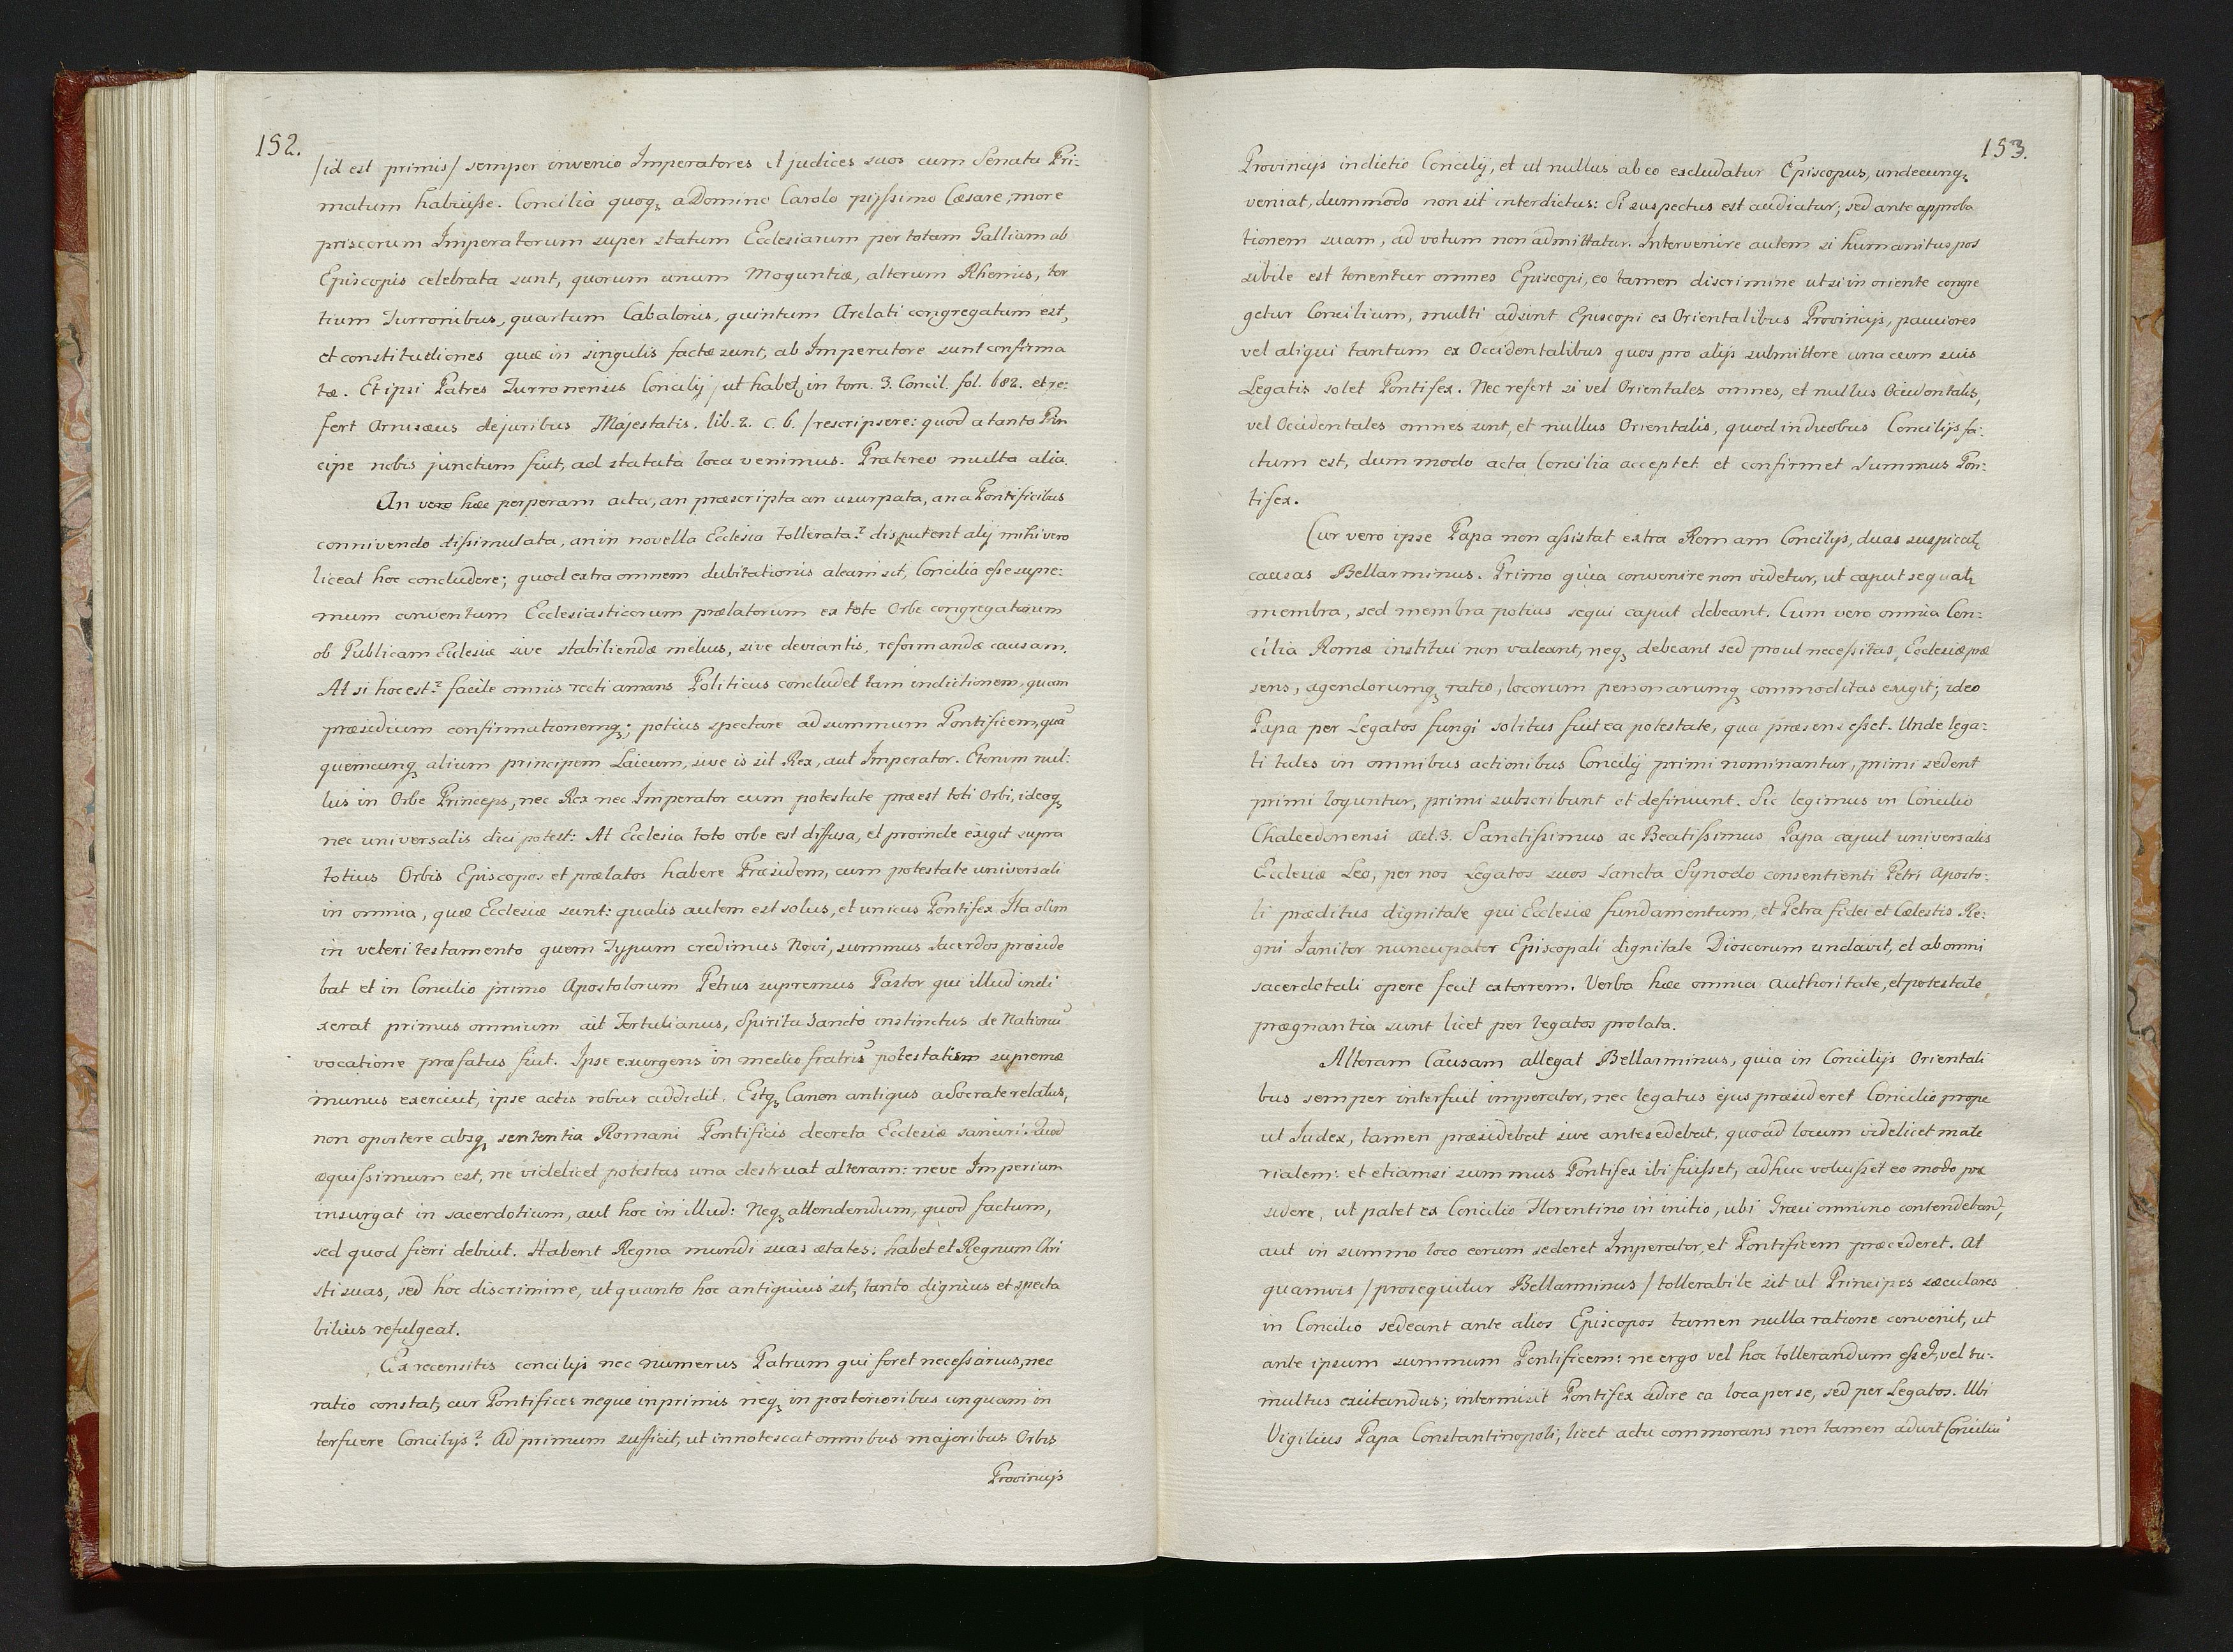 152.
/id est primis/ semper invenio Imperatores et judices suos cum Senatu Pri-
matum habuisse. Concilia quoq; a Domino Carolo pijssimo Cæsare, more
priscorum Imperatorum super statum Ecclesiarum per totam Galliam ab
Episcopis celebrata sunt, quorum unum Moguntiæ, alterum Rhemis, ter
tium Turronibus, quartum Cabalonis, quintum Arelati congregatum est,
et constitudiones quæ in singulis factæ sunt, ab Imperatore sunt confirma
tæ. Et ipsi Patres Turronensis Concilij /ut habet; in tom. 3. Concil. fol. 682. et re-
fert Arnisæus de juribus Majestatis. lib. 2. c. 6. /rescripsere: quod a tanto Prin
cipe nobis junctum fuit, ad statuta loca venimus. Prætereo multa alia.
An vero hæc perperam acta, an præscripta an usurpata, an a Pontificibus
connivendo dissimulata, an in novella Ecclesia tollerata? disputent alij mihi vero
liceat hoc concludere; quod extra omnem dubitationis aleam sit, Concilia esse supre-
mum conventum Ecclesiasticorum prælatorum ex toto Orbe congregatorum
ob Publicam Ecclesiæ sive stabiliendæ melius, sive deviantis, reformandæ causam.
At si hoc est? facile omnis recti amans Politicus concludet tam indictionem, quam
præsidium confirmationemq;; potius spectare ad summum Pontificem, quā
quemcunq; alium principem Laicum, sive is sit Rex, aut Imperator. Etenim nul-
lus in Orbe Princeps, nec Rex nec Imperator cum potestate præest toti Orbi, ideoq;
nec universalis dici potest: At Ecclesia toto orbe est diffusa, et proinde exigit supra
totius Orbis Episcopos et prælatos habere Præsidem, cum potestate universali
in omnia, quæ Ecclesiæ sunt: qualis autem est solus, et unicus Pontifex. Ita olim
in veteri testamento quem Typum credimus Novi, summus Sacerdos præside
bat et in Concilio primo Apostolorum Petrus supremus Pastor qui illud indi
xerat primus omnium ait Tertulianus, Spiritu Sancto instinctus de Nationū
vocatione præfatus fuit. Ipse exurgens in medio fratrū potestatism supremæ
munus exercuit, ipse actis robur addidit. Estq; Canon antiqus a Socrate relatus,
non oportere absq; sententia Romani Pontificis decreta Ecclesiæ sanciri. Quod
æquissimum est, ne videlicet potestas una destruat alteram: neve Imperium
insurgat in sacerdotium, aut hoc in illud: Neq; attendendum, quod factum,
sed quod fieri debuit. Habent Regna mundi suas ætates: habet et Regnum Chri
sti suas, sed hoc discrimine, ut quanto hoc antiquius sit, tanto dignius et specta
bilius refulgeat.
Ex recensitis concilijs nec numerus Patrum qui foret necessarius, nec
ratio constat, cur Pontifices neque in primis neq; in posterioribus unquam in
terfuere Concilijs? Ad primum sufficit, ut innotescat omnibus majoribus Orbis
Provincijs
153.
Provincijs indictio Concilij, et ut nullus ab eo excludatur Episcopus, undecunq;
veniat, dummodo non sit interdictus: Si suspectus est audiatur; sed ante approba
tionem suam, ad votum non admittatur. Intervenire autem si humanitus pos
sibile est tenentur omnes Episcopi, eo tamen discrimine ut si in oriente congre
getur Concilium, multi adsint Episcopi ex Orientalibus Provincijs, pauciores
vel aliqui tantum ex Occidentalibus quos pro alijs submittere una cum suis
Legatis solet Pontifex. Nec refert si vel Orientales omnes, et nullus Occidentalis,
vel Occidentales omnes sint, et nullus Orientalis, quod in duobus Concilijs fa-
ctum est, dummodo acta Concilia acceptet et confirmet Summus Pon-
tifex.
Cur vero ipse Papa non assistat extra Romam Concilijs, duas suspicat;
causas Bellarminus. Primo quia convenire non videtur, ut caput sequat;
membra, sed membra potius sequi caput debeant. Cum vero omnia Con-
cilia Romæ institui non valeant, neq; debeant sed prout necessitas Ecclesiæ præ
sens, agendorumq; ratio, locorum personarumq; commoditas exigit; ideo
Papa per Legatos fungi solitus fuit ea potestate, qua præsens esset. Unde lega-
ti tales in omnibus actionibus Concilij primi nominantur, primi sedent
primi loquntur, primi subscribunt et definiunt. Sic legimus in Concilio
Chalcedonensi act. 3. Sanctissimus ac Beatissimus Papa caput universalis
Ecclesiæ Leo, per nos Legatos suos Sancta Synodo consentienti Petri Aposto-
li præditus dignitate qui Ecclesiæ fundamentum, et Petra fidei et Cælestis Re-
gni Janitor nuncupator Episcopali dignitate Dioscorum undavit, et ab omni
sacerdotali opere fecit extorrem. Verba hæc omnia authoritate, et potestate
prægnantia sunt licet per legatos prolata.
Alteram Causam allegat Bellarminus, quia in Concilijs Orientali
bus semper interfuit imperator, nec legatus ejus præsideret Concilio prope
ut Judex, tamen præsidebat sive antesedebat, quoad locum videlicet mate
rialem: et etiamsi summus Pontifex ibi fuisset, adhuc voluisset eo modo præ
sidere, ut patet ex Concilio Florentino in initio, ubi Græci omnino contendebant,
aut in summo loco eorum sederet Imperator, et Pontificem præcederet. At
quamvis /prosequitur Bellarminus/ tollerabile sit ut Principes sæculares
in Concilio sedeant ante alios Episcopos tamen nulla ratione convenit, ut
ante ipsum summum Pontificem: ne ergo vel hoc tollerandum esset, vel tu-
multus exitandus; intermisit Pontifex adire ea loca per se, sed per Legatos. Ubi
Vigilius Papa Constantinopoli, licet actu commorans non tamen adivit Conciliū